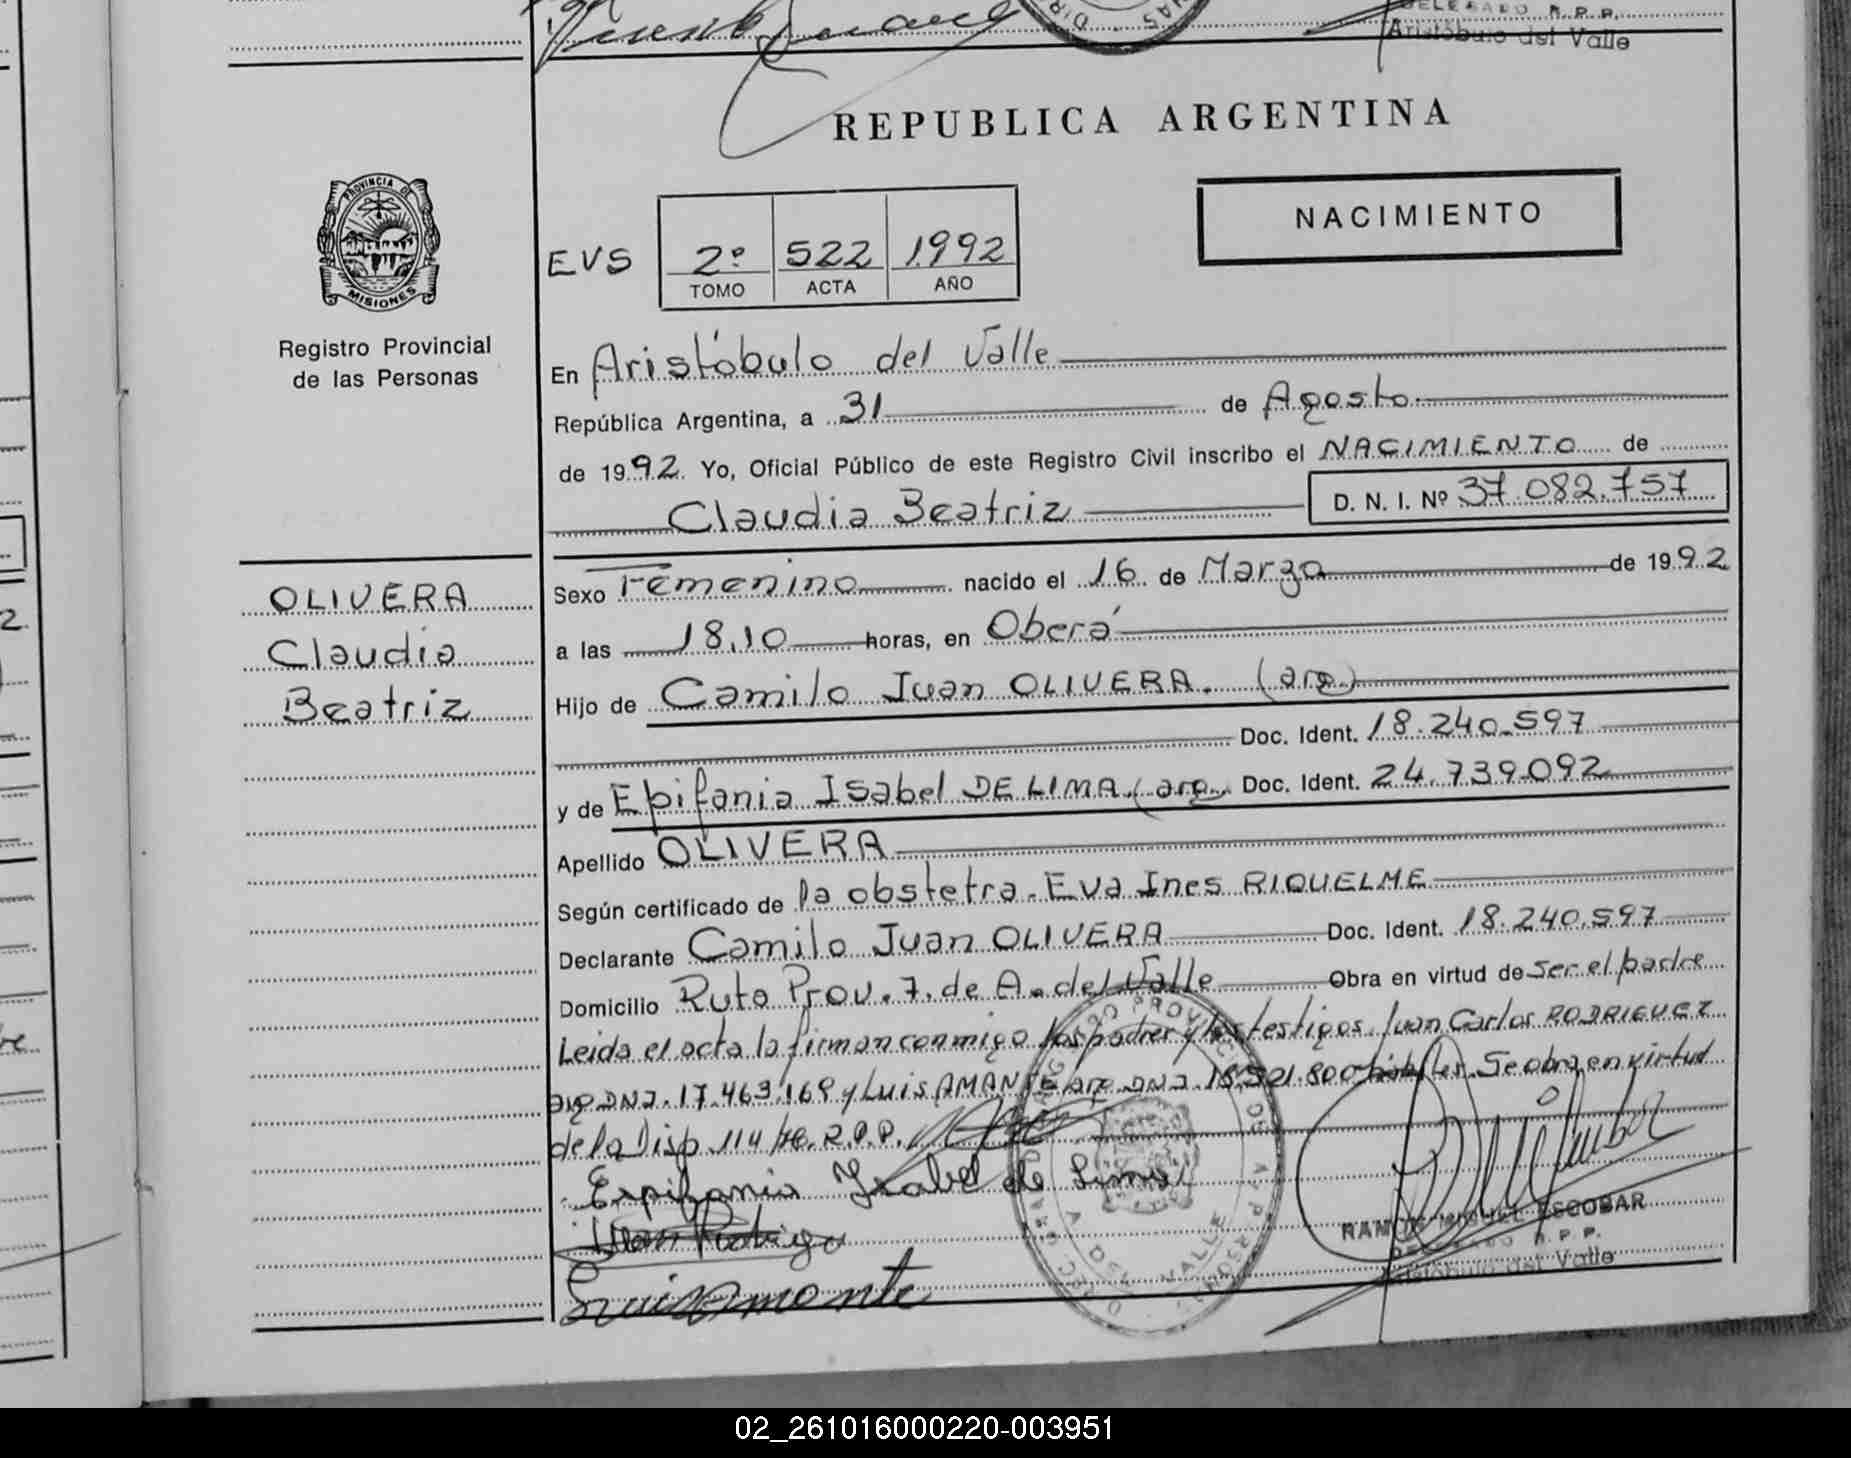 DELEGADO R.P.P.
Aristóbulo del Valle
REPUBLICA ARGENTINA
PROVINCIA DE
MISIONES
Registro Provincial
de las Personas
EVS
2º 522 1992
TOMO ACTA AÑO
NACIMIENTO
En Aristóbulo del Valle
República Argentina, a 31 de Agosto
de 1992. Yo, Oficial Público de este Registro Civil inscribo el NACIMIENTO de
Claudia Beatriz D. N. I. Nº 37.082.757
OLIVERA
Claudia
Beatriz
Sexo Femenino nacido el 16 de Marzo de 1992
a las 18,10 horas, en Oberá
Hijo de Camilo Juan OLIVERA. (arg.)
Doc. Ident. 18.240.597
y de Epifania Isabel DE LIMA (arg. Doc. Ident. 24.739.092
Apellido OLIVERA
Según certificado de la obstetra. Eva Ines RIQUELME
Declarante Camilo Juan OLIVERA Doc. Ident. 18.240.597
Domicilio Ruta Prov. 7. de A. del Valle Obra en virtud de ser el padre
Leida el acta la firman conmigo los padres y los testigos. Juan Carlos RODRIGUEZ
arg DNI. 17.463.169 y Luis AMANTE arg DNI. Se obra en virtud
de la Disp 114/ R.P.P.
Espifania Ysabel de Lima
Juan Rodrigu
Luis Amante
RAMON MIGUEL ESCOBAR
DELEGADO R.P.P.
Aristóbulo del Valle
02_261016000220-003951